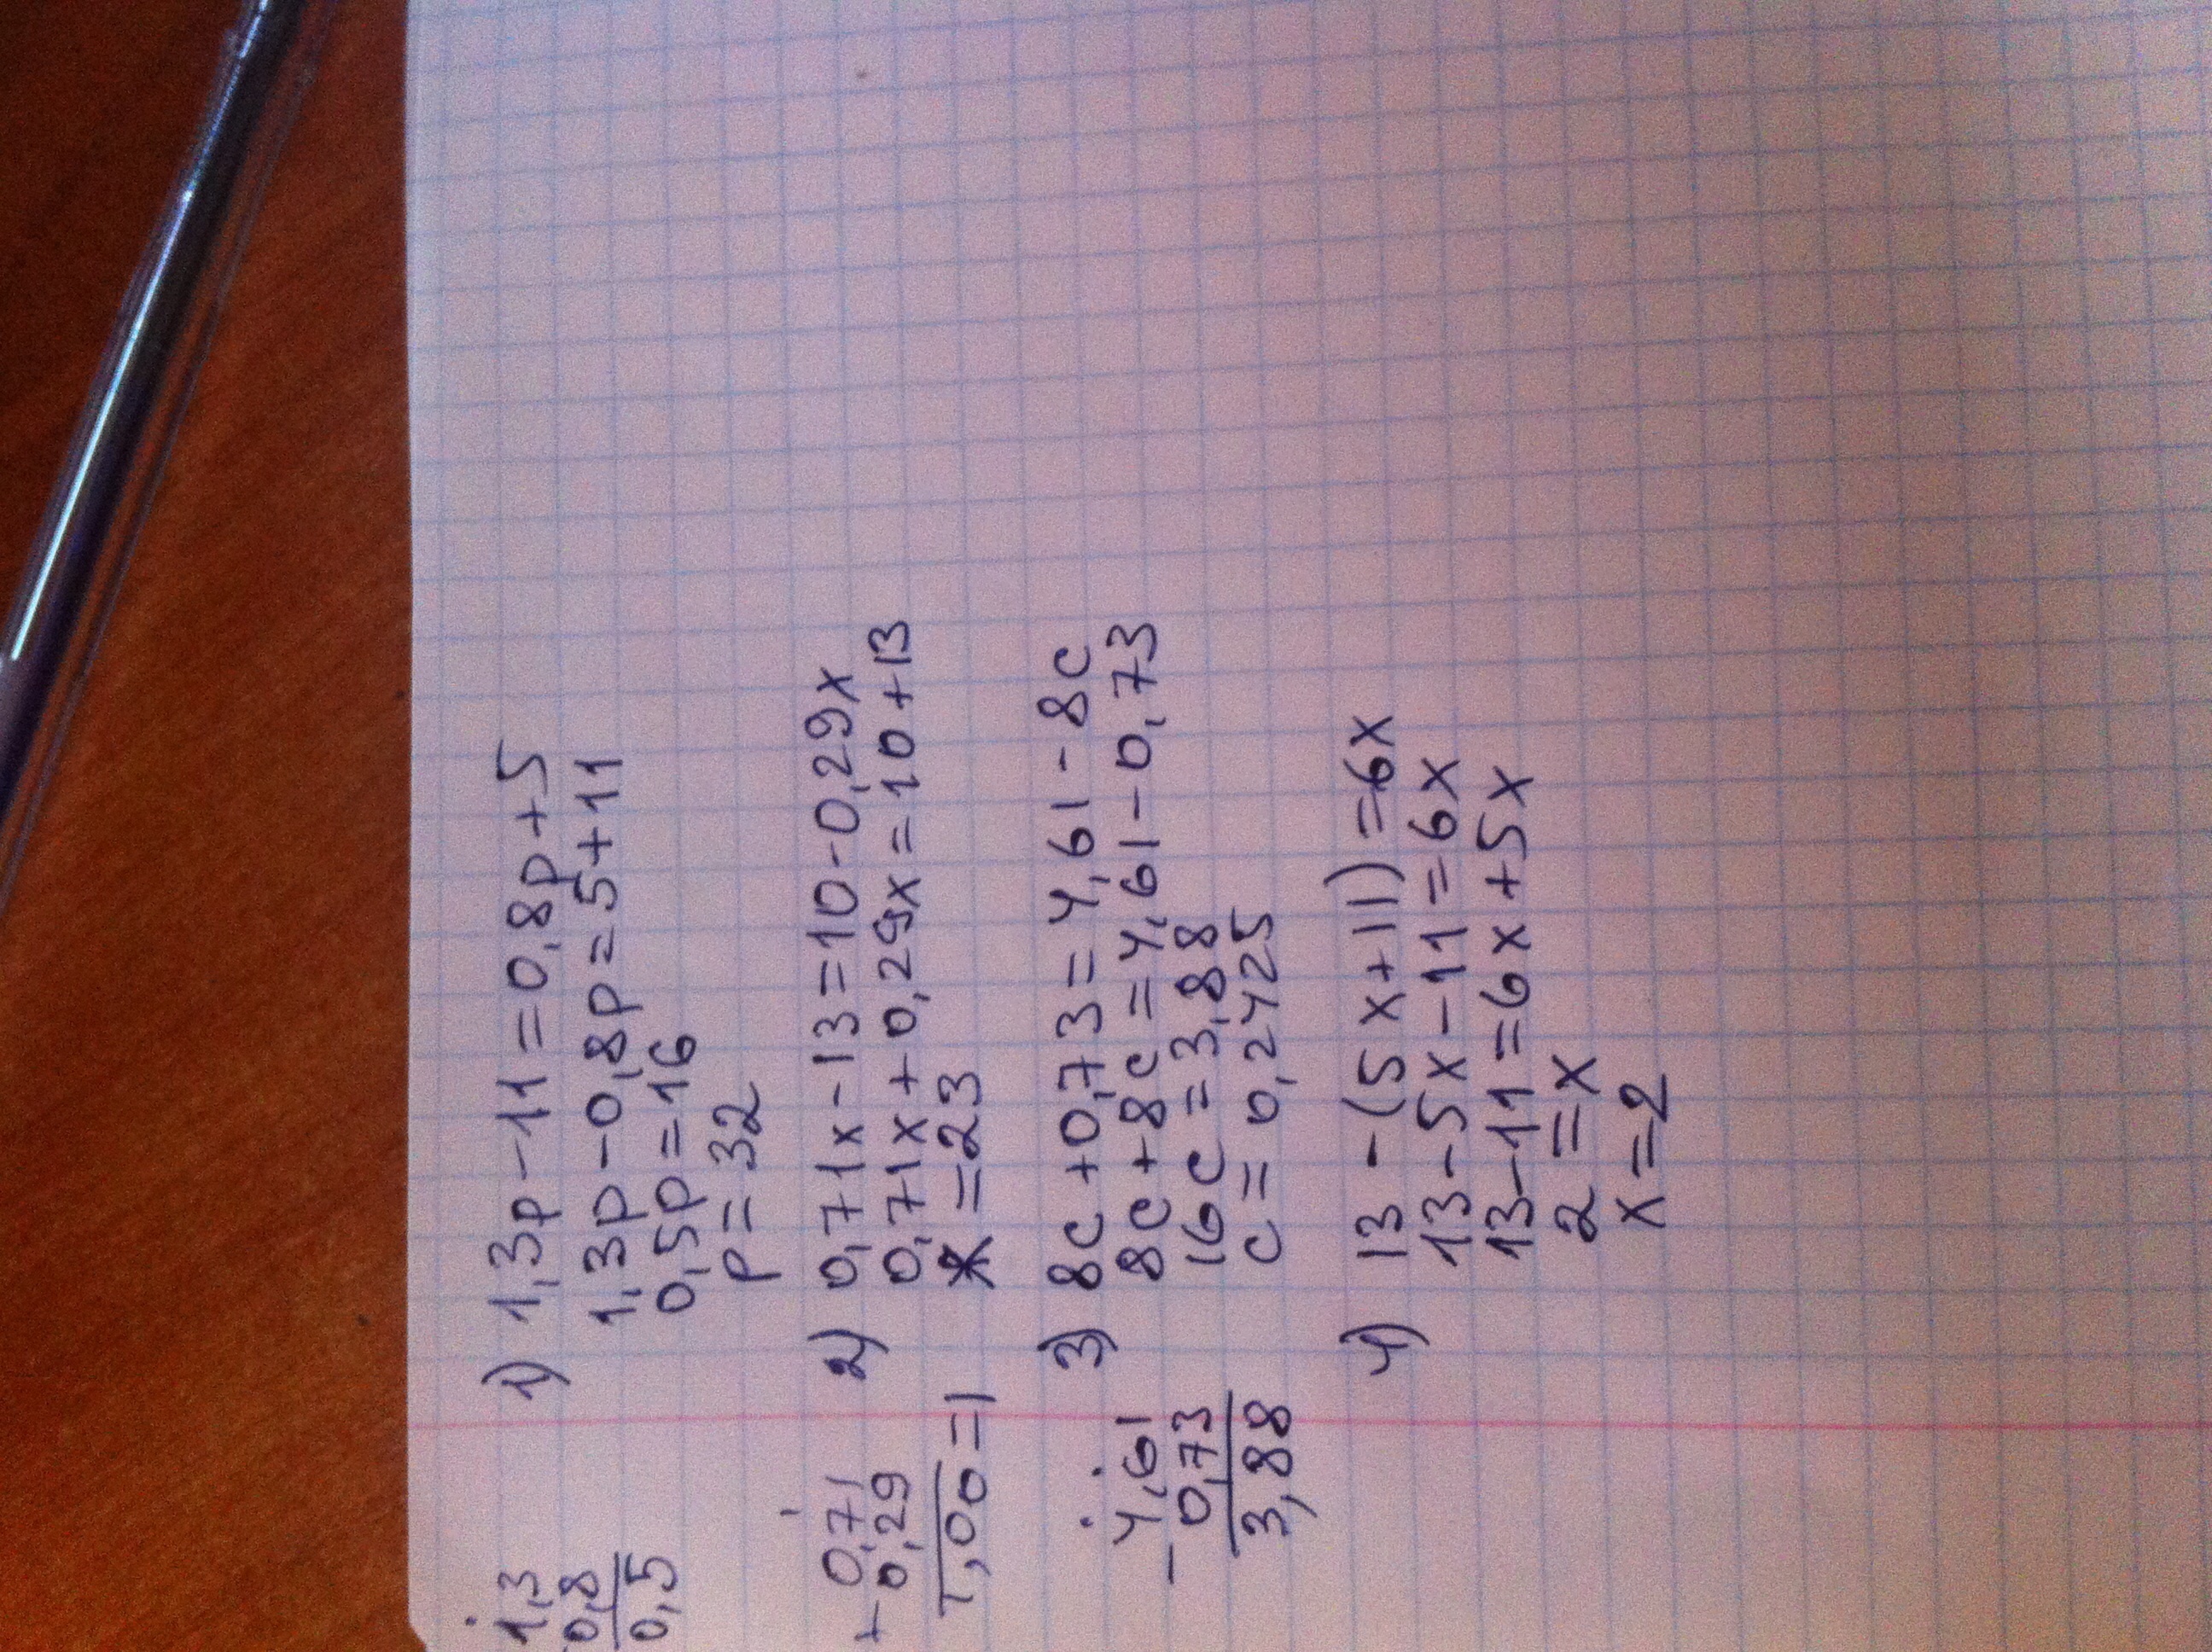 1,3
0,8
0,5
1) 1,3p-11=0,8p+5
1,3p-0,8p=5+11
0,5p=16
p=32
0,71
+ 0,29
1,00=1
2) 0,71x-13=10-0,29x
0,71x+0,29x=10+13
x=23
4,61
- 0,73
3,88
3) 8c+0,73=4,61-8c
8c+8c=4,61-0,73
16c=3,88
c=0,2425
4) 13-(5x+11)=6x
13-5x-11=6x
13-11=6x+5x
2=x
x=2